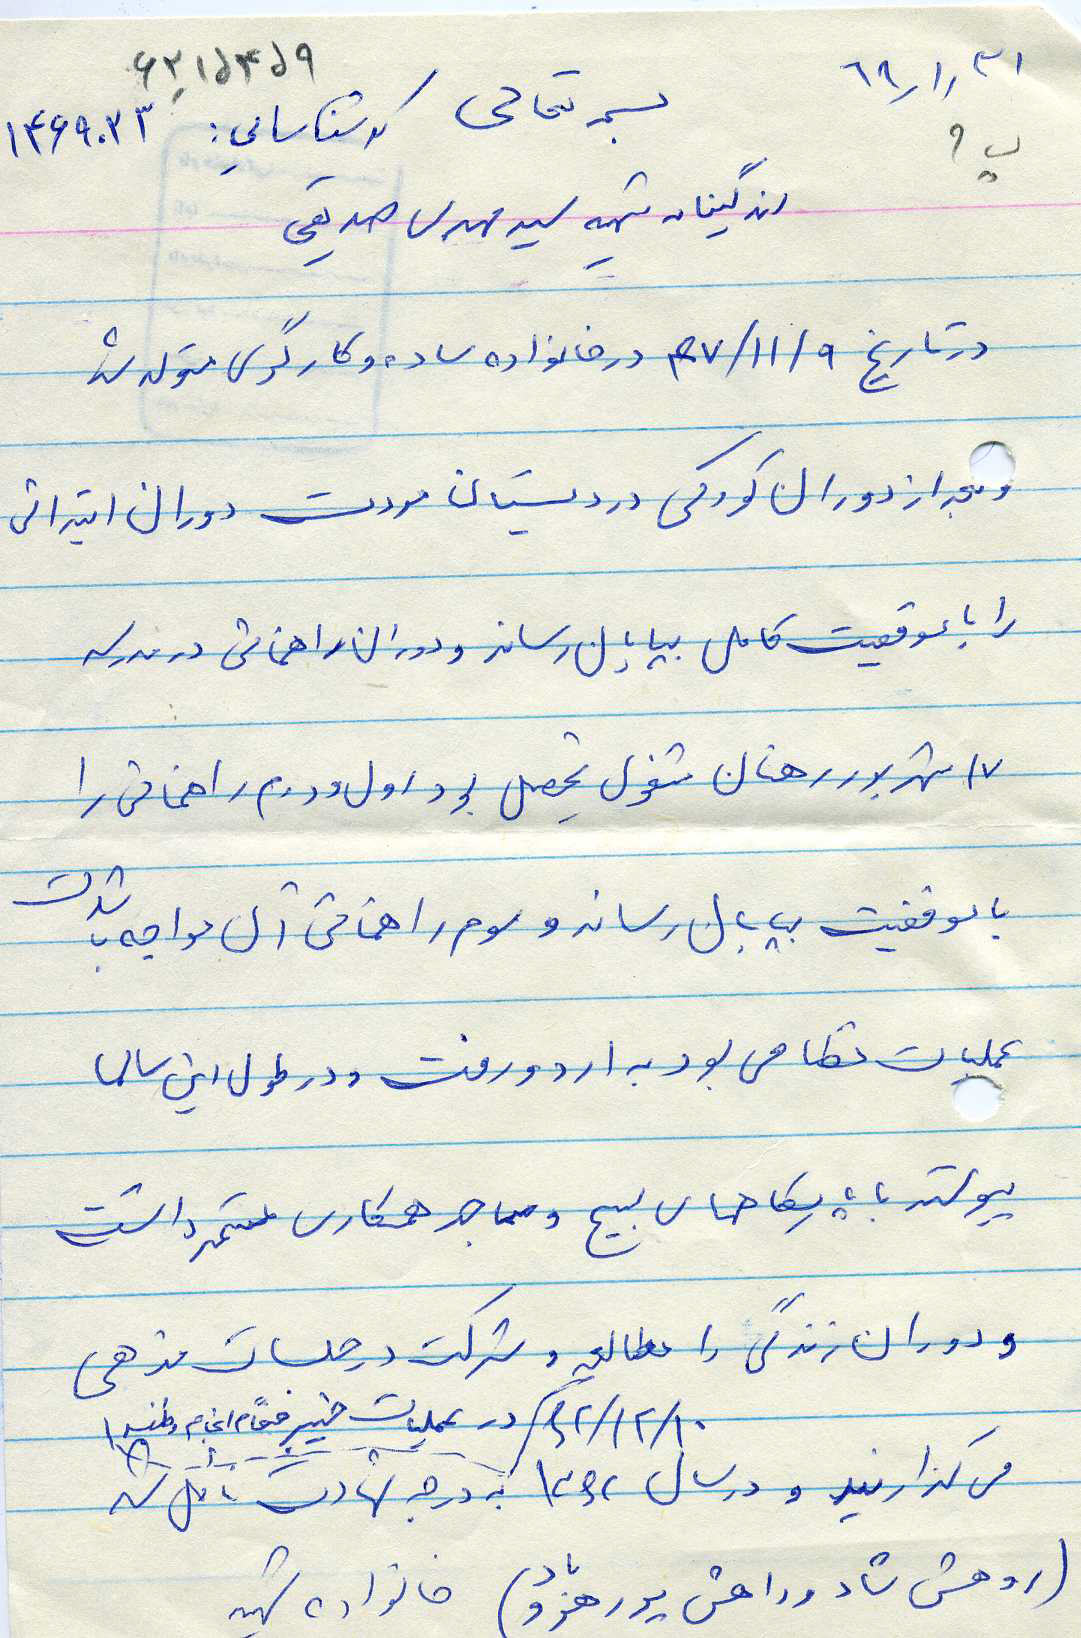 ۶۲۱۵۴۵۹
۶۹ر۱ر۳۱
بسمه تعالی
کد شناسایی: ۱۴۶۹۰۲۳
پ ۹
زندگینامه شهید سید مهدی صدیقی
در تاریخ ۴۷/۱۱/۹ در خانواده ساده و کارگری متولد شد
و بعد از دوران کودکی در دبستان مودت دوران ابتدائی
را با موفقیت کامل بپایان رساند و دوران راهنمائی در مدرسه
۱۷ شهریور رهنان مشغول تحصیل بود اول و دوم راهنمائی را
با موفقیت بپایان رساند و سوم راهنمائی آن مواجه با شدت
عملیات نظامی بود به اردو رفت و در طول این سالها
پیوسته با پایگاههای بسیج و مساجد همکاری مستمر داشت
و دوران زندگی را مطالعه و شرکت در جلسات مذهبی
۶۲/۱۲/۱۰ در عملیات خیبر هنگام انجام وظیفه
می گذارنید و در سال ۱۳۶۲ به درجه شهادت نائل شد
(روحش شاد و راهش پررهرو باد) خانواده شهید